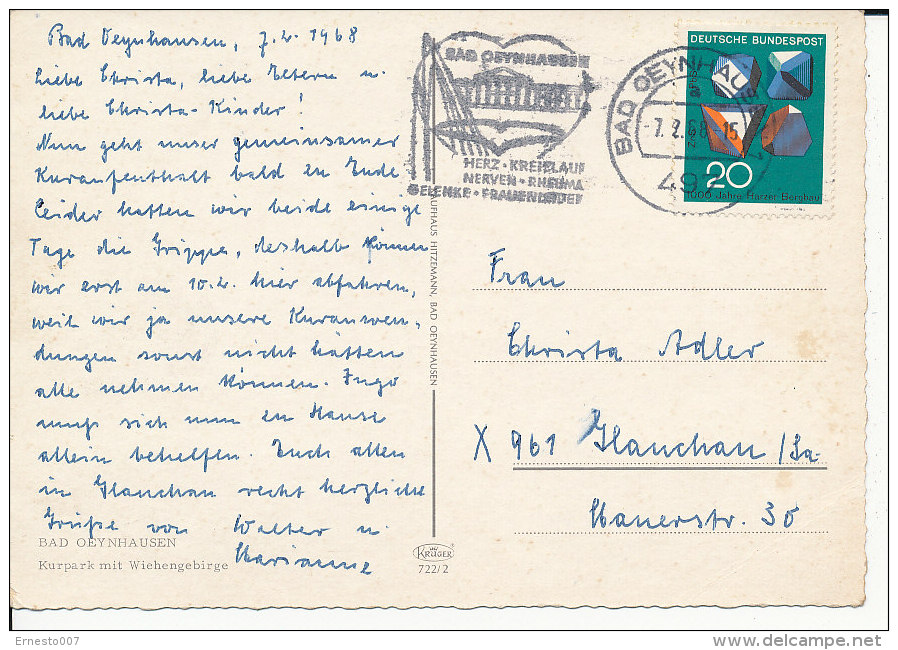 Bad Oeynhausen, 7.2.1968
Liebe Christa, liebe Eltern u.
liebe Christa-Kinder!
Nun geht unser gemeinsamer
Kuraufenthalt bald zu Ende.
Leider hatten wir beide einige
Tage die Grippe, deshalb können
wir erst am 10.2. hier abfahren,
weil wir ja unsere Kuranwen-
dungen sonst nicht hätten
alle nehmen können. Ingo
muß sich nun zu Hause
allein behelfen. Euch allen
in Glauchau recht herzliche
Grüße von Walter u.
Marianne
BAD OEYNHAUSEN
Kurpark mit Wiehengebirge
KAUFHAUS HITZEMANN, BAD OEYNHAUSEN
KRÜGER
722/2
BAD OEYNHAUSEN
HERZ · KREISLAUF
NERVEN · RHEUMA
GELENKE · FRAUENLEIDEN
BAD OEYNHAUSEN
7.2.68-15
497
DEUTSCHE BUNDESPOST
20
1000 Jahre Harzer Bergbau
Frau
Christa Adler
X 961 Glauchau /Sa.
Mauerstr. 30
Ernesto007
www.delcampe.net